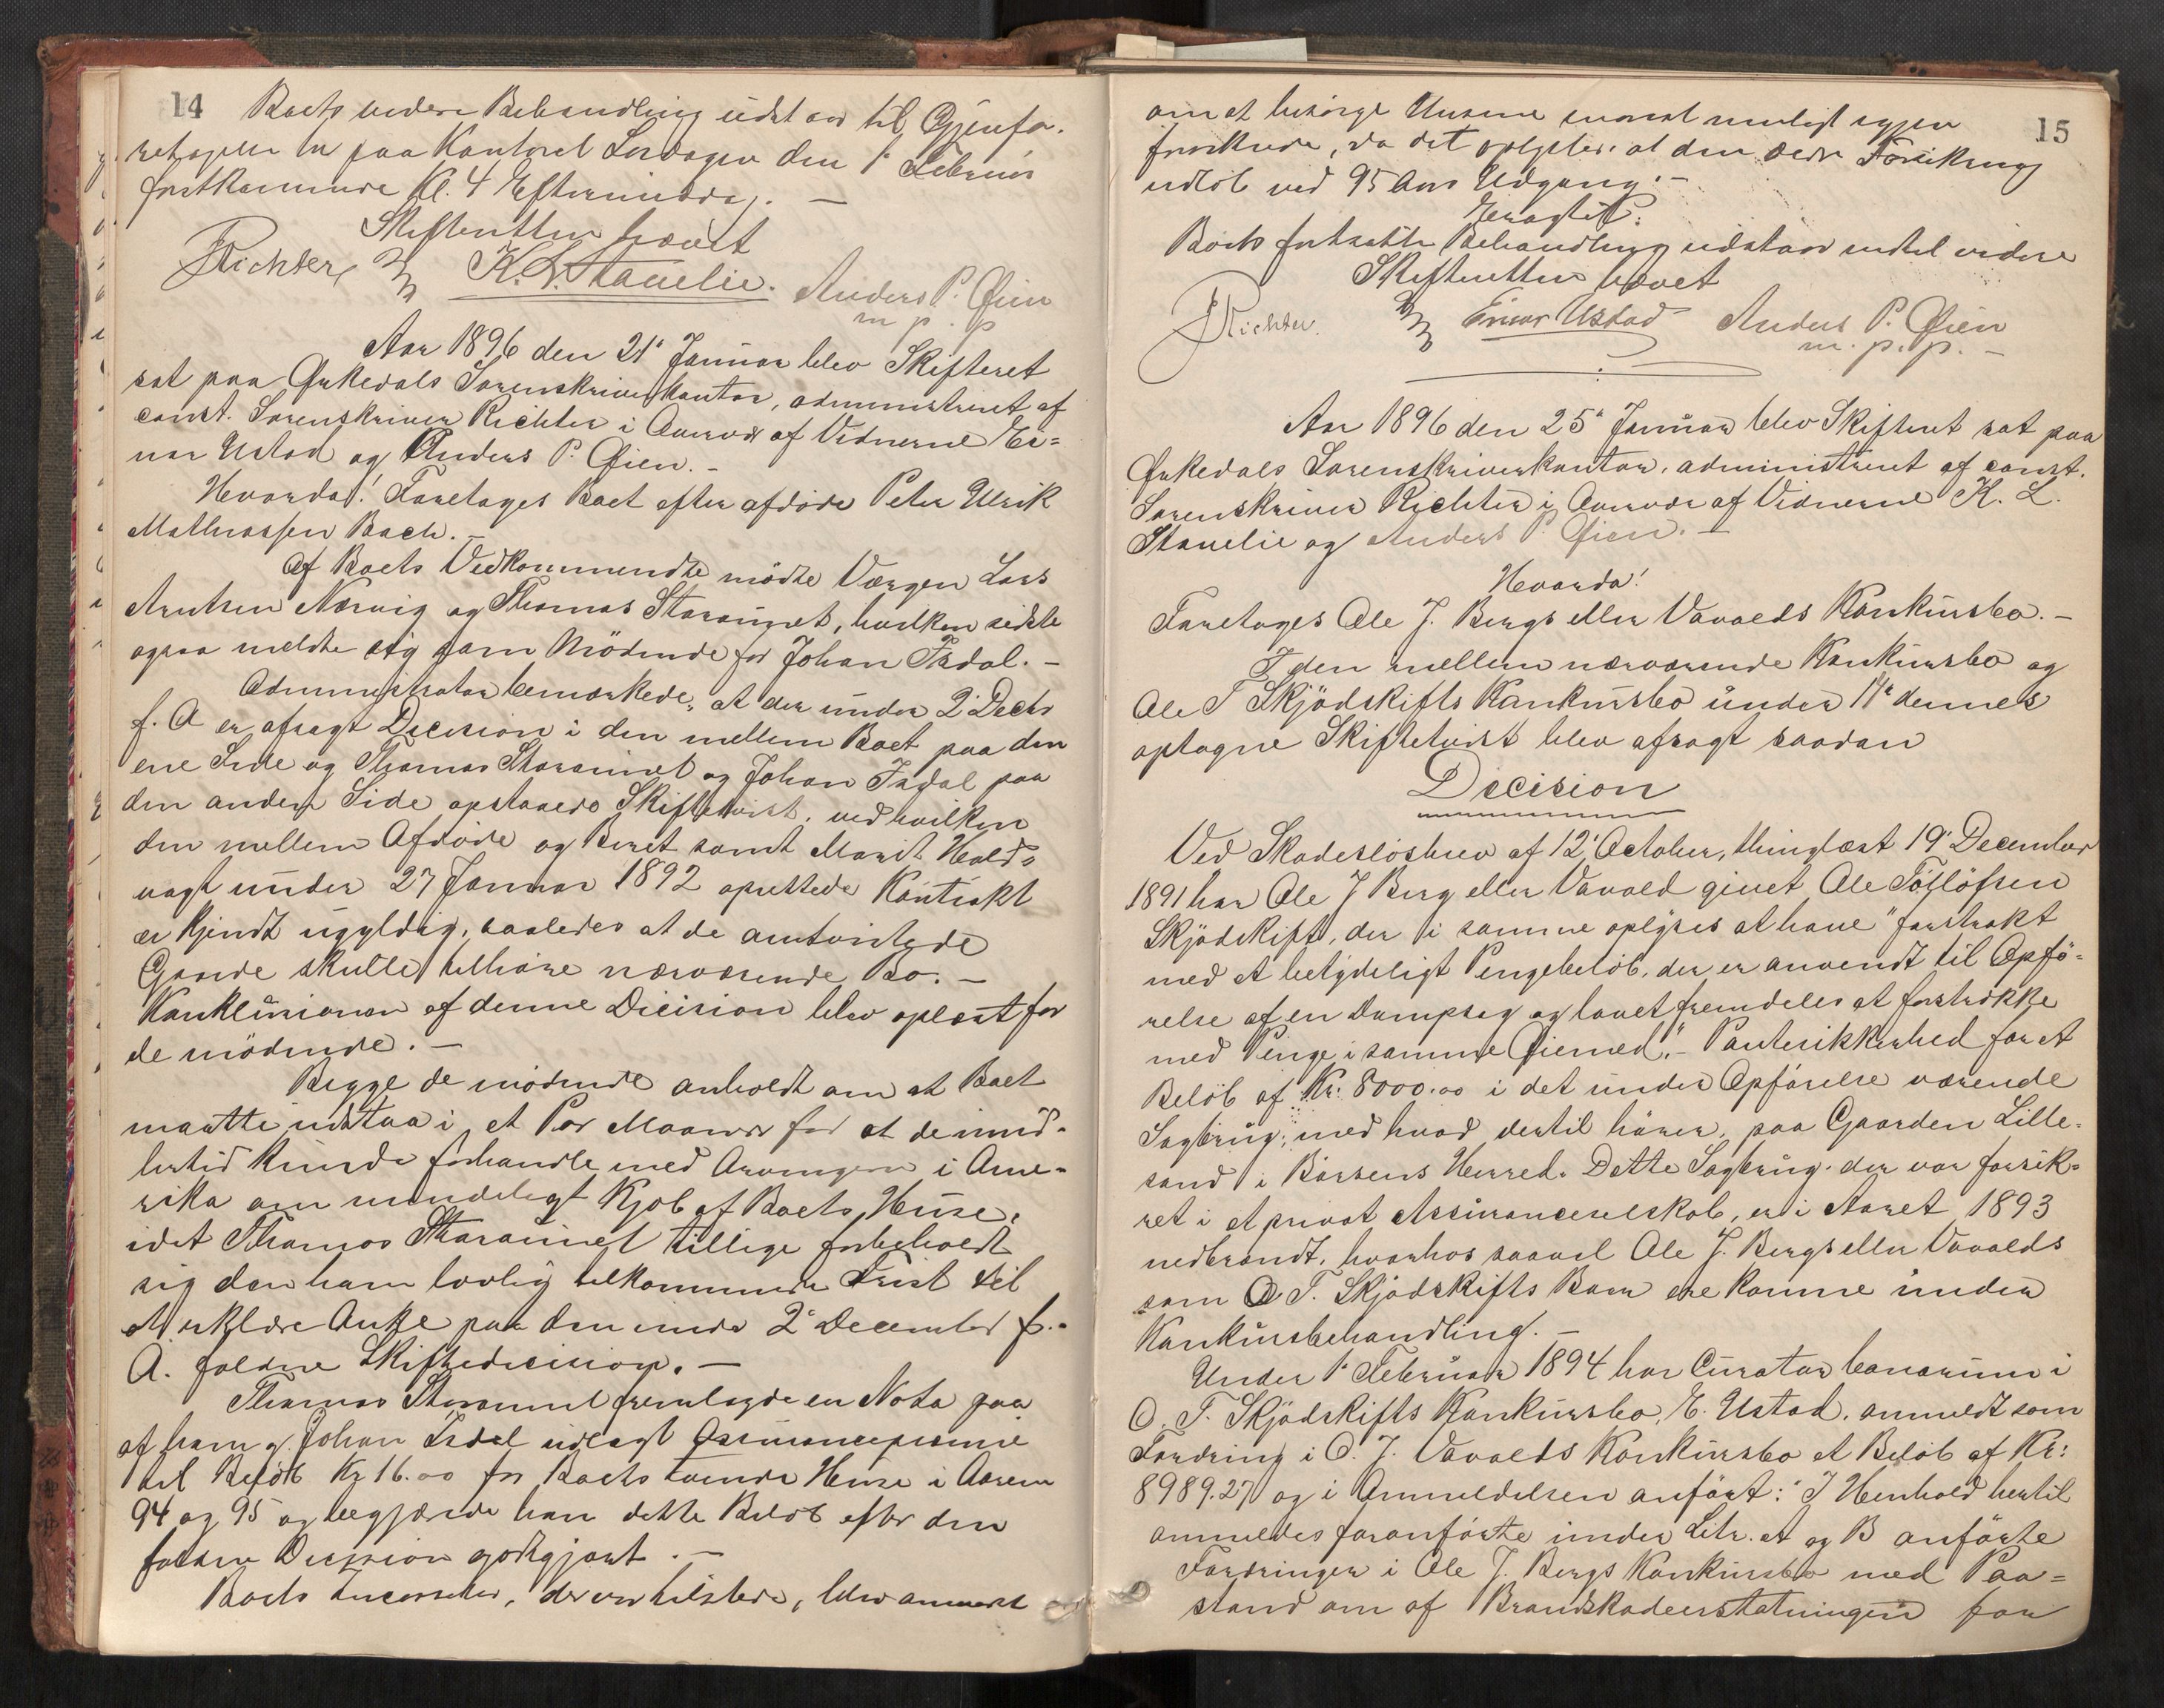 14
Boets videre Behandling udstaar til Gjenfo-
retagelse her paa Kontoret Lørdagen den 1ste Februar
førstkommende Kl. 4 Eftermiddag. —
Skifteretten hævet
Richter K. L. Stavelie. Anders P. Øien
m p. p
Aar 1896 den 21de Januar blev Skifteret
sat paa Ørkedals Sorenskriverkontor, administreret af
const. Sorenskriver Richter i Overvær af Vidnerne Ei=
nar Ustad og Anders P. Øien. -
Hvorda! Foretages Boet efter afdøde Peter Ulrik
Mathiassen Bach. -
Af Boets Vedkommende mødte Værgen Lars
Arntsen Nærvig og Thomas Storaunet, hvilken sidste
ogsaa meldte sig som Mødende for Johan Isdal. -
Administrator bemærkede, at der under 2 Decbr
f. A er afsagt Decision i den mellem Boet paa den
ene Side og Thomas Storaunet og Johan Isdal paa
den anden Side opstaaede Skiftetvist, ved hvilken
den mellem Afdøde og Beret samt Marit Hold=
vagt under 27 Januar 1892 oprettede Kontrakt
er kjendt ugyldig, saaledes at de omtvistede
Gaarde skulle tilhøre nærværende Bo. -
Konklusionen af denne Decision blev oplæst for
de mødende. -
Begge de mødende anholdt om at Boet
maatte udstaa i et Par Maaneder for at de imid-
lertid kunde forhandle med Arvingerne i Ame-
rika om mindeligt Kjøb af Boets Huse,
idet Thomas Storaunet tillige forbeholdt
sig den ham lovlig tilkommende Frist til
at erklære Anke paa den under 2 December f.
A. faldne Skiftedecision. -
Thomas Storaunet fremlagde en Nota paa
af ham og Johan Isdal udlagt Assurancepræmie
til Beløb Kr 16.00 for Boets tvende Huse i Aarene
94 og 95 og begjærede han dette Beløb efter den
faldne Decision godtgjort. -
Boets Incassator, der var tilstede, blev anmodet

15
om at besørge Husene snarest muligt igjen
forsikrede, da det oplystes at den sidste Forsikring
udløb ved 95 Aars Udgang. -
Fragtet.
Boets fortsatte Behandling udstaar indtil videre
Skifteretten hævet
Richter. Einar Ustad Anders P. Øien
m. p. p. -
Aar 1896 den 25de Januar blev Skifteret sat paa
Ørkedals Sorenskriverkontor, administreret af const.
Sorenskriver Richter i Overvær af Vidnerne K. L.
Stavelie og Anders P. Øien. -
Hvorda!
Foretages Ole J. Bergs eller Vavolds Konkursbo. -
I den mellem nærværende Konkursbo og
Ole T Skjødskifts Konkursbo under 11te dennes
optagne Skiftetvist blev afsagt saadan
Decision
Ved Skadesløsbrev af 12 October, thinglæst 19 December
1891 har Ole J Berg eller Vavold givet Ole Tølløfsen
Skjødskift, der i samme oplyses at have "forstrakt
med et betydeligt Pengebeløb, der er anvendt til Opfø=
relse af en Dampsag og lovet fremdeles at forstrække
med Penge i samme Øiemed" - Pantesikkerhed for et
Beløb af Kr. 8000.00 i det under Opførelse værende
Sagbrug, med hvad dertil hører, paa Gaarden Lille-
sand i Børsens Herred. Dette Sagbrug, der var forsik=
ret i et privat Assuranceselskab, er i Aaret 1893
nedbrændt, hvorhos saavel Ole J. Bergs eller Vavolds
som O. T. Skjødskifts Boer ere komne under
Konkursbehandling. -
Under 1ste Februar 1894 har Curator bonorum i
O. T. Skjødskifts Konkursbo, E. Ustad, anmeldt som
Fordring i O. J. Vavolds Konkursbo et Beløb af Kr:
8989.27 og i Anmeldelsen anført: "I Henhold hertil
anmeldes foranførte under Litr. A og B anførte
Fordringer i Ole J. Bergs Konkursbo med Paa=
stand om af Brandskadeerstatningen for